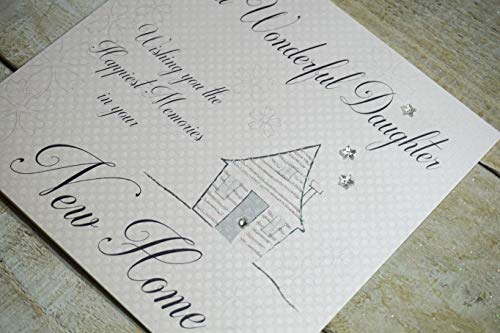 Wonderful Daughter
Wishing you the
Happiest Memories
in your
New Home